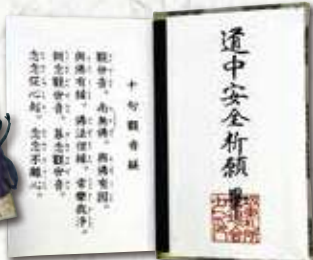 道中安全祈願
十句觀音經
觀世音。南無佛。與佛有因。
與佛有緣。佛法僧緣。常樂我淨。
朝念觀世音。暮念觀世音。
念念從心起。念念不離心。